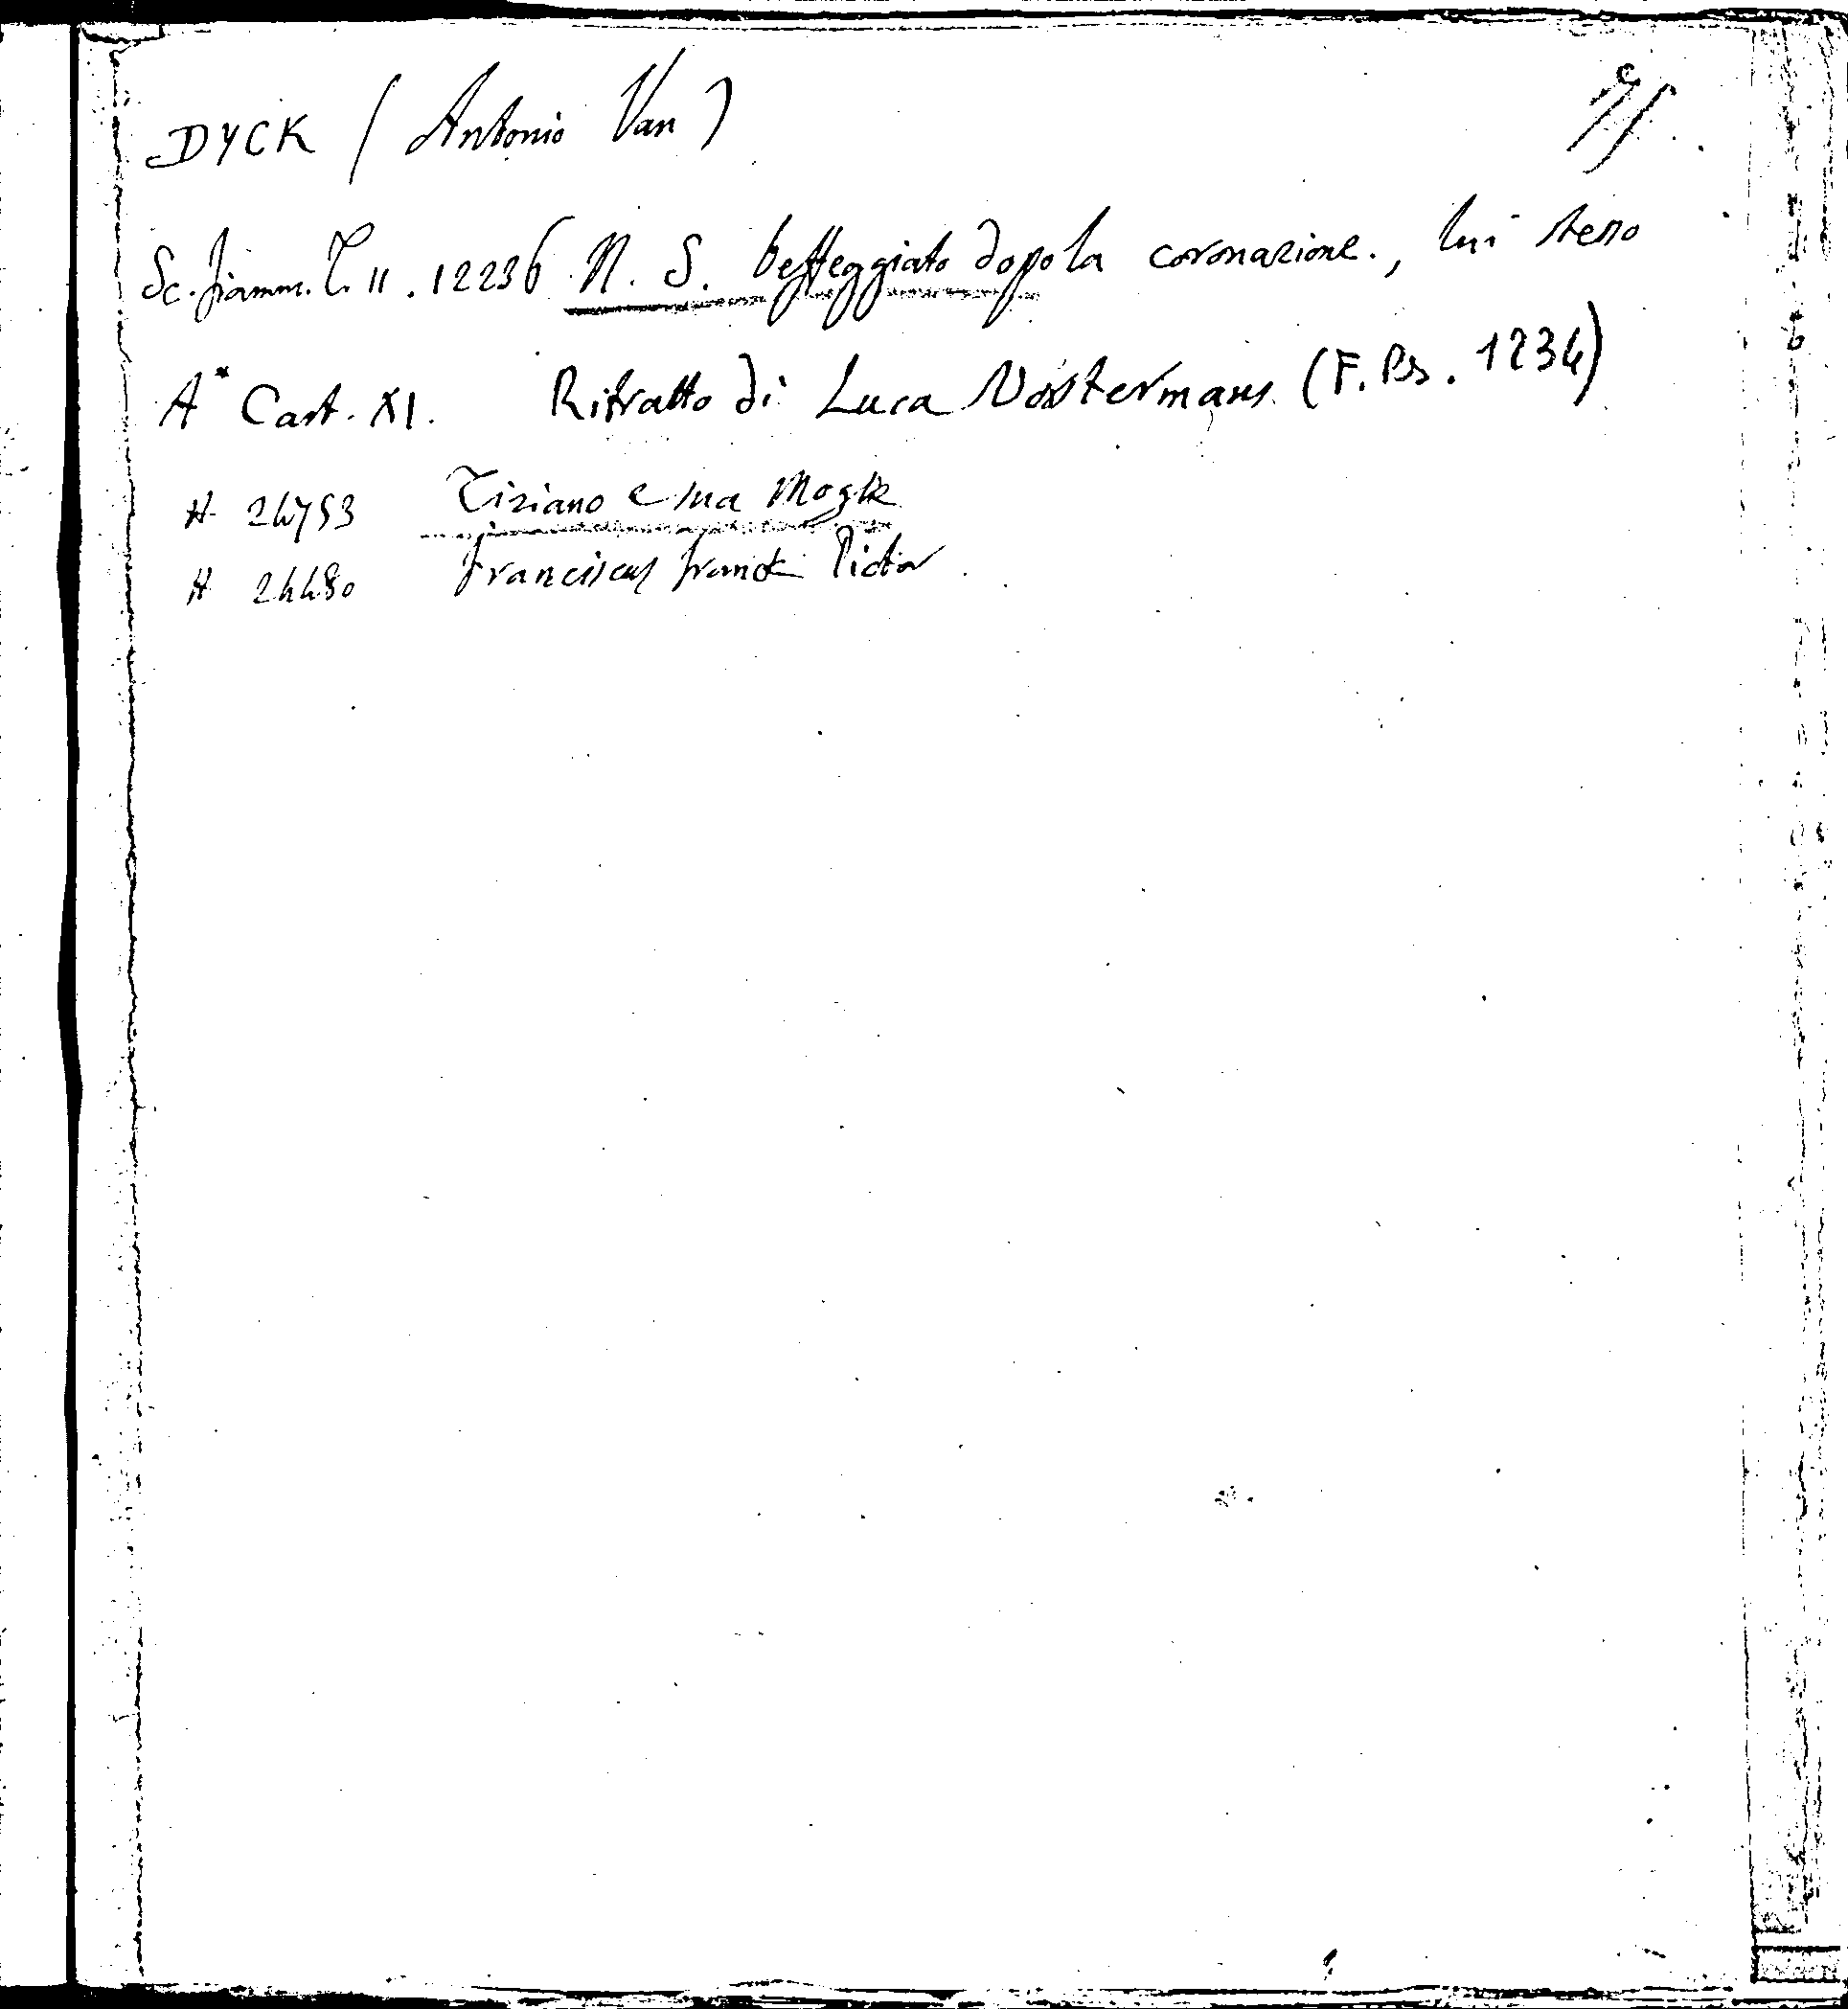 DYCK (Antonio Van)
Sc. fiamm. T. 11. 12236 N. S. beffeggiato dopo la coronazione., lui stesso
A* Cart. XI. Ritratto di Luca Vostermans (F. Bs. 1234)
A 24753 Tiziano e sua Moglie
A 24480 Franciscus franck Pictor